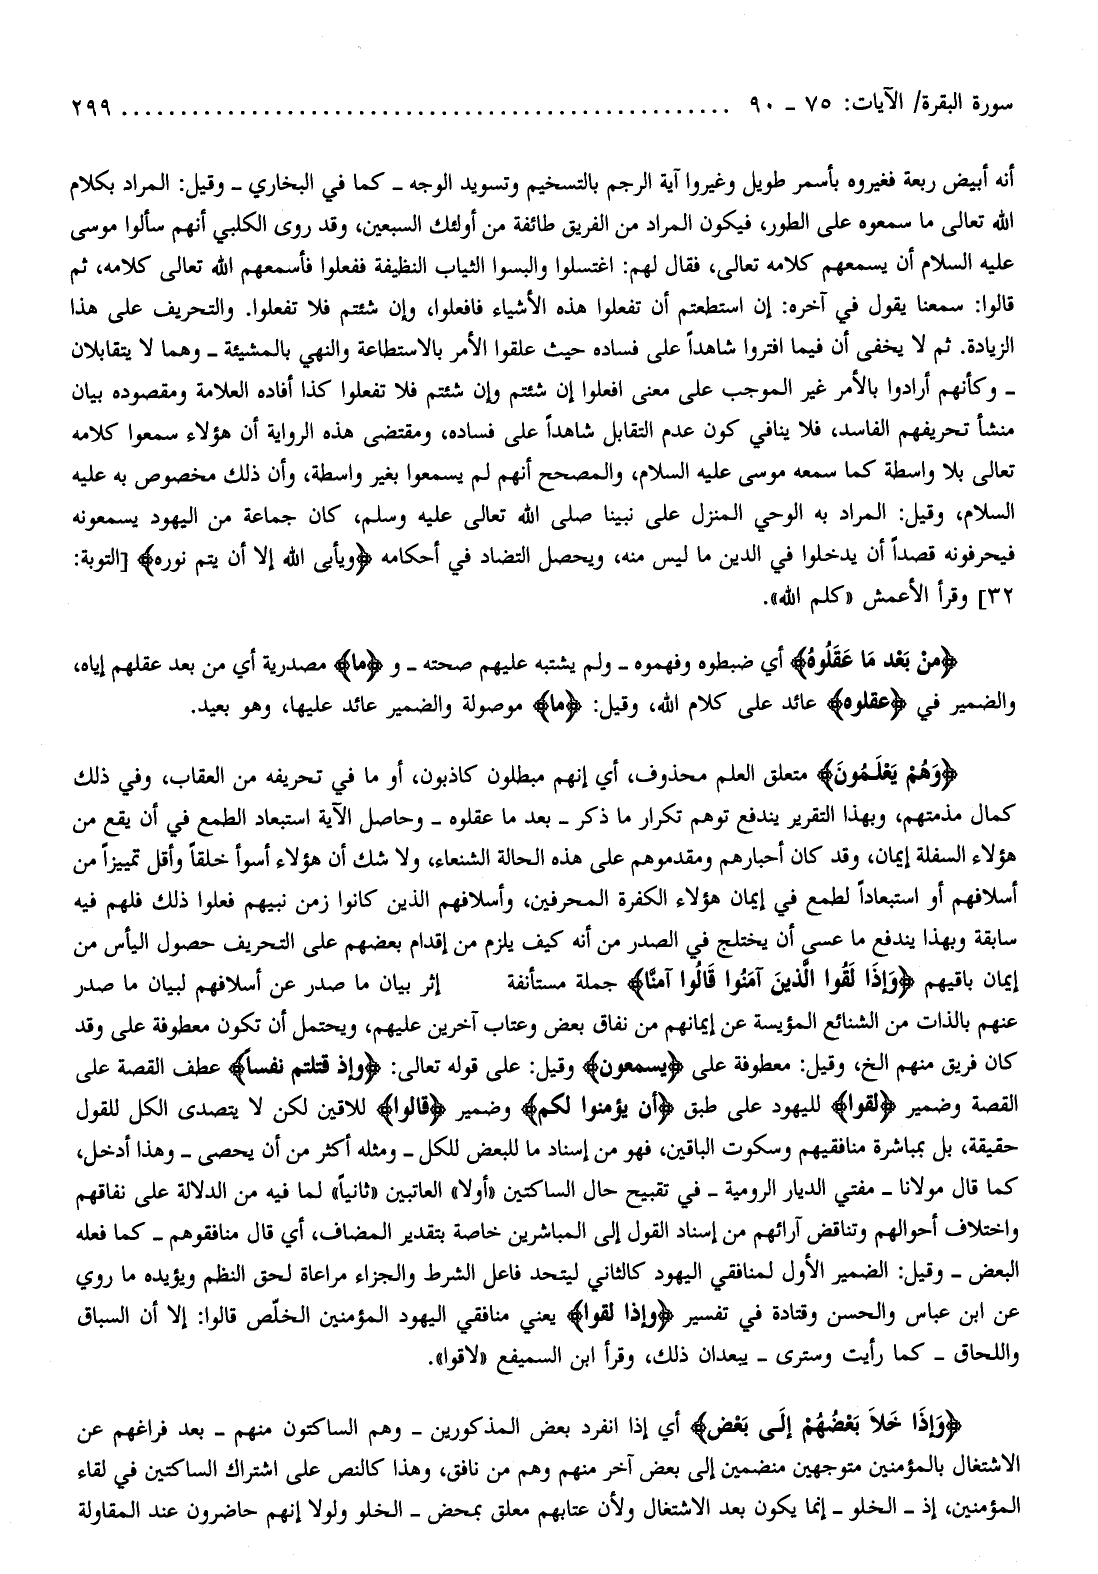 سورة البقرة/ الآيات: ٧٥ ـ ٩٠ ................................................ ٢٩٩
أنه أبيض ربعة فغيروه بأسمر طويل وغيروا آية الرجم بالتسخيم وتسويد الوجه ـ كما في البخاري ـ وقيل: المراد بكلام
الله تعالى ما سمعوه على الطور، فيكون المراد من الفريق طائفة من أولئك السبعين، وقد روى الكلبي أنهم سألوا موسى
عليه السلام أن يسمعهم كلامه تعالى، فقال لهم: اغتسلوا والبسوا الثياب النظيفة ففعلوا فأسمعهم الله تعالى كلامه، ثم
قالوا: سمعنا يقول في آخره: إن استطعتم أن تفعلوا هذه الأشياء فافعلوا، وإن شئتم فلا تفعلوا. والتحريف على هذا
الزيادة. ثم لا يخفى أن فيما افتروا شاهداً على فساده حيث علقوا الأمر بالاستطاعة والنهي بالمشيئة ـ وهما لا يتقابلان
ـ وكأنهم أرادوا بالأمر غير الموجب على معنى افعلوا إن شئتم وإن شئتم فلا تفعلوا كذا أفاده العلامة ومقصوده بيان
منشأ تحريفهم الفاسد، فلا ينافي كون عدم التقابل شاهداً على فساده، ومقتضى هذه الرواية أن هؤلاء سمعوا كلامه
تعالى بلا واسطة كما سمعه موسى عليه السلام، والمصحح أنهم لم يسمعوا بغير واسطة، وأن ذلك مخصوص به عليه
السلام، وقيل: المراد به الوحي المنزل على نبينا صلى الله تعالى عليه وسلم، كان جماعة من اليهود يسمعونه
فيحرفونه قصداً أن يدخلوا في الدين ما ليس منه، ويحصل التضاد في أحكامه ﴿ويأبى الله إلا أن يتم نوره﴾ [التوبة:
٣٢] وقرأ الأعمش «كلم الله».
﴿مِنْ بَعْد مَا عَقَلُوهُ﴾ أي ضبطوه وفهموه ـ ولم يشتبه عليهم صحته ـ و ﴿ما﴾ مصدرية أي من بعد عقلهم إياه،
والضمير في ﴿عقلوه﴾ عائد على كلام الله، وقيل: ﴿ما﴾ موصولة والضمير عائد عليها، وهو بعيد.
﴿وَهُمْ يَعْلَمُونَ﴾ متعلق العلم محذوف، أي إنهم مبطلون كاذبون، أو ما في تحريفه من العقاب، وفي ذلك
كمال مذمتهم، وبهذا التقرير يندفع توهم تكرار ما ذكر ـ بعد ما عقلوه ـ وحاصل الآية استبعاد الطمع في أن يقع من
هؤلاء السفلة إيمان، وقد كان أحبارهم ومقدموهم على هذه الحالة الشنعاء، ولا شك أن هؤلاء أسوأ خلقاً وأقل تمييزاً من
أسلافهم أو استبعاداً لطمع في إيمان هؤلاء الكفرة المحرفين، وأسلافهم الذين كانوا زمن نبيهم فعلوا ذلك فلهم فيه
سابقة وبهذا يندفع ما عسى أن يختلج في الصدر من أنه كيف يلزم من إقدام بعضهم على التحريف حصول اليأس من
إيمان باقيهم ﴿وَإِذَا لَقُوا الَّذينَ آمَنُوا قَالُوا آمنَّا﴾ جملة مستأنفة إثر بيان ما صدر عن أسلافهم لبيان ما صدر
عنهم بالذات من الشنائع المؤيسة عن إيمانهم من نفاق بعض وعتاب آخرين عليهم، ويحتمل أن تكون معطوفة على وقد
كان فريق منهم الخ، وقيل: معطوفة على ﴿يسمعون﴾ وقيل: على قوله تعالى: ﴿وإذ قتلتم نفساً﴾ عطف القصة على
القصة وضمير ﴿لقوا﴾ لليهود على طبق ﴿أن يؤمنوا لكم﴾ وضمير ﴿قالوا﴾ للاقين لكن لا يتصدى الكل للقول
حقيقة، بل بمباشرة منافقيهم وسكوت الباقين، فهو من إسناد ما للبعض للكل ـ ومثله أكثر من أن يحصى ـ وهذا أدخل،
كما قال مولانا ـ مفتي الديار الرومية ـ في تقبيح حال الساكتين «أولا» العاتبين «ثانياً» لما فيه من الدلالة على نفاقهم
واختلاف أحوالهم وتناقض آرائهم من إسناد القول إلى المباشرين خاصة بتقدير المضاف، أي قال منافقوهم ـ كما فعله
البعض ـ وقيل: الضمير الأول لمنافقي اليهود كالثاني ليتحد فاعل الشرط والجزاء مراعاة لحق النظم ويؤيده ما روي
عن ابن عباس والحسن وقتادة في تفسير ﴿وإذا لقوا﴾ يعني منافقي اليهود المؤمنين الخلّص قالوا: إلا أن السباق
واللحاق ـ كما رأيت وسترى ـ يبعدان ذلك، وقرأ ابن السميفع «لاقوا».
﴿وَإِذَا خَلاَ بَعْضُهُمْ إِلَى بَعْض﴾ أي إذا انفرد بعض المذكورين ـ وهم الساكتون منهم ـ بعد فراغهم عن
الاشتغال بالمؤمنين متوجهين منضمين إلى بعض آخر منهم وهم من نافق، وهذا كالنص على اشتراك الساكتين في لقاء
المؤمنين، إذ ـ الخلو ـ إنما يكون بعد الاشتغال ولأن عتابهم معلق بمحض ـ الخلو ولولا إنهم حاضرون عند المقاولة